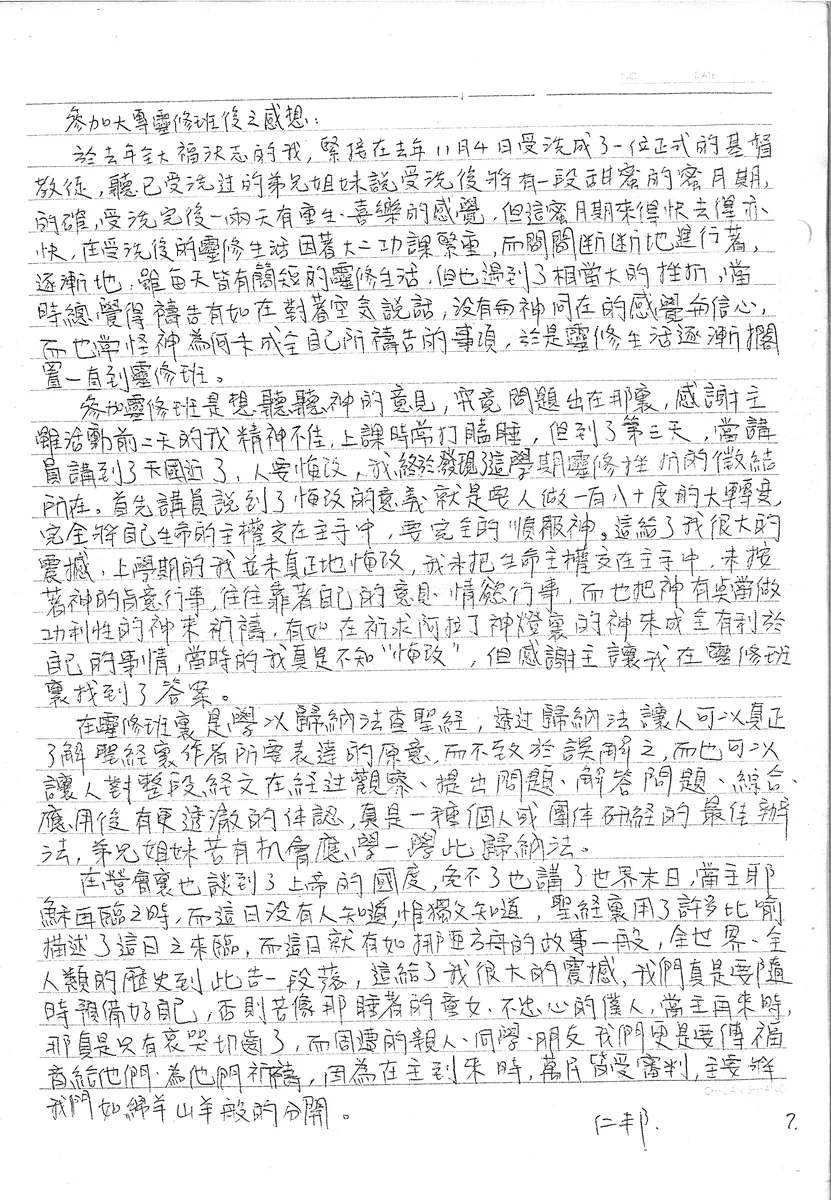 NO. DATE
參加大專靈修班後之感想：
於去年全大福決志的我，緊接在去年11月4日受洗成了一位正式的基督
教徒，聽已受洗过的弟兄姐妹說受洗後將有一段甜蜜的蜜月期，
的確，受洗完後一兩天有重生、喜樂的感覺，但這蜜月期來得快去得亦
快，在受洗後的靈修生活因著大二功課繁重，而間間斷斷地進行著，
逐漸地，雖每天皆有簡短的靈修生活，但也遇到了相當大的挫折，當
時總覺得禱告有如在對著空気說話，没有與神同在的感覺與信心，
而也常怪神為何未成全自己所禱告的事項，於是靈修生活逐漸擱
置一直到靈修班。
參加靈修班是想聽聽神的意見，究竟問題出在那裏，感謝主
雖活動前二天的我精神不佳，上課時常打瞌睡，但到了第三天，當講
員講到了天國近了，人要悔改，我終於發現了這學期靈修挫折的癥結
所在。首先講員說到了悔改的意義就是要人做一百八十度的大轉變，
完全將自己生命的主權交在主手中，要完全的順服神。這給了我很大的
震撼，上學期的我並未真正地悔改，我未把生命主權交在主手中，未按
著神的旨意行事，往往靠著自己的意見、情慾行事，而也把神有矣當做
功利性的神來祈禱，有如在祈求阿拉丁神燈裏的神來成全有利於
自己的事情，當時的我真是不知"悔改"，但感謝主讓我在靈修班
裏找到了答案。
在靈修班裏是學以歸納法查聖経，透过歸納法讓人可以真正
了解聖経裏作者所要表達的原意，而不致於誤解之，而也可以
讓人對整段経文在経过觀察、提出問題、解答問題、綜合、
應用後有更透澈的体認，真是一種個人或團体研経的最佳辦
法，弟兄姐妹若有机會應學一學此歸納法。
在營會裏也談到了上帝的國度，免不了也講了世界末日，當主耶
穌再臨之時，而這日没有人知道，惟獨父知道，聖経裏用了許多比喻
描述了這日之來臨，而這日就有如挪亞方舟的故事一般，全世界、全
人類的歷史到此告一段落，這給了我很大的震撼，我們真是要隨
時預備好自己，否則若像那睡著的童女、不忠心的僕人，當主再來時，
那真是只有哀哭切齒了，而周遭的親人、同學、朋友我們更是要傳福
音給他們、為他們祈禱，因為在主到來時，萬民皆受審判，主要將
我們如綿羊山羊般的分開。
仁邦. 7.